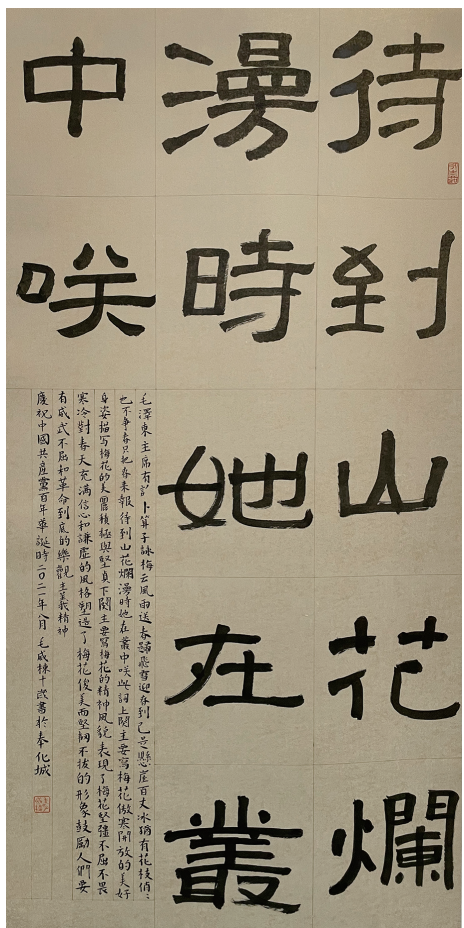 待到山花爛
漫時她在叢
中咲
毛澤東主席有詩卜算子詠梅云風雨送春歸飛雪迎春到已是懸崖百丈冰猶有花枝俏俏
也不争春只把春来報待到山花爛漫時她在叢中咲此詞上闋主要寫梅花傲寒開放的美好
身姿描写梅花的美麗積極與堅貞下闋主要寫梅花的精神風貌表現了梅花堅强不屈不畏
寒冷對春天充满信心和謙虚的風格塑造了梅花俊美而堅韌不拔的形象鼓勵人們要
有威武不屈和革命到底的樂觀主義精神
慶祝中國共産黨百年華誕時二〇二一年八月毛威棟十歲書於奉化城